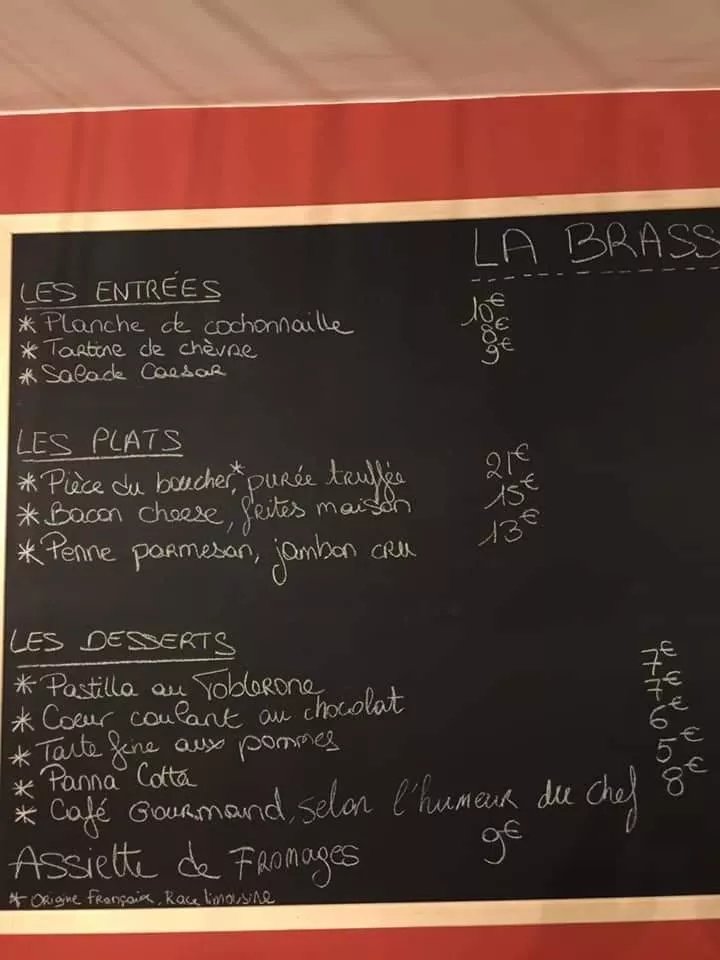 LA BRASS
LES ENTRÉES
* Planche de cochonnaille 10€
* Tartine de chèvre 8€
* Salade Caesar 9€
LES PLATS
* Pièce du boucher*, purée truffée 21€
* Bacon cheese, frites maison 15€
* Penne parmesan, jambon cru 13€
LES DESSERTS
* Pastilla au Toblerone 7€
* Coeur coulant au chocolat 7€
* Tarte fine aux pommes 6€
* Panna Cotta 5€
* Café Gourmand, selon l'humeur du chef 8€
Assiette de Fromages 9€
* Origine Française, Race limousine